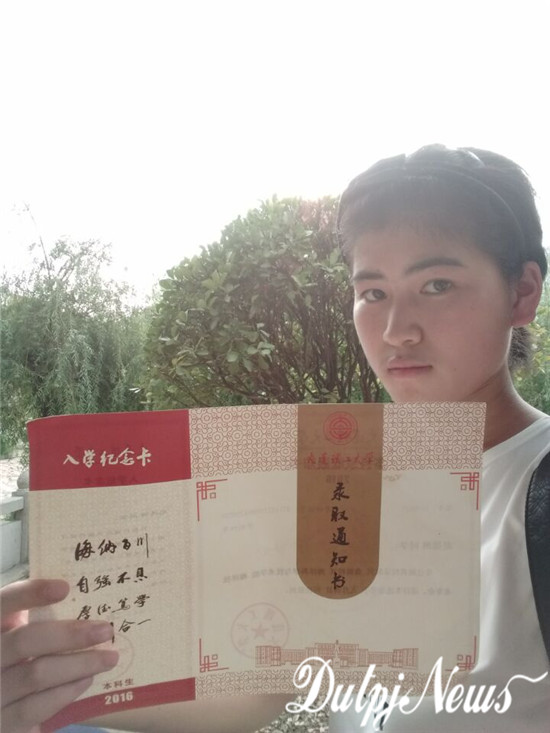 入学纪念卡
海纳百川
自强不息
厚德笃学
合一
本科生
2016
大连理工大学
录取通知书
DutpjNews